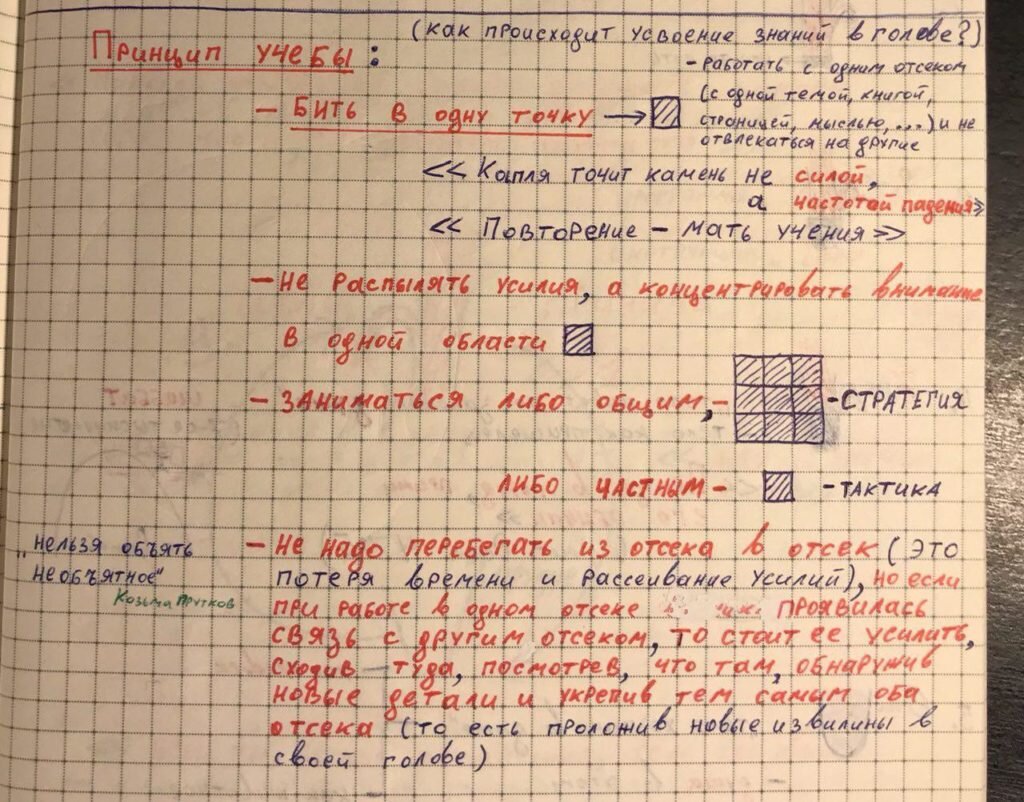 (как происходит усвоение знаний в голове?)
Принцип учебы:
- работать с одним отсеком
(с одной темой, книгой,
страницей, мыслью, ...) и не
отвлекаться на другие
- Бить в одну точку →
<< Капля точит камень не силой,
а частотой падения >>
<< Повторение - мать учения >>
- Не распылять усилия, а концентрировать внимание
в одной области
- Заниматься либо общим, - - СТРАТЕГИЯ
либо частным - - ТАКТИКА
„нельзя объять
необъятное“
Козьма Прутков
- Не надо перебегать из отсека в отсек (это
потеря времени и рассеивание усилий), но если
при работе в одном отсеке проявилась
связь с другим отсеком, то стоит ее усилить,
сходив туда, посмотрев, что там, обнаружив
новые детали и укрепив тем самым оба
отсека (то есть проложив новые извилины в
своей голове)